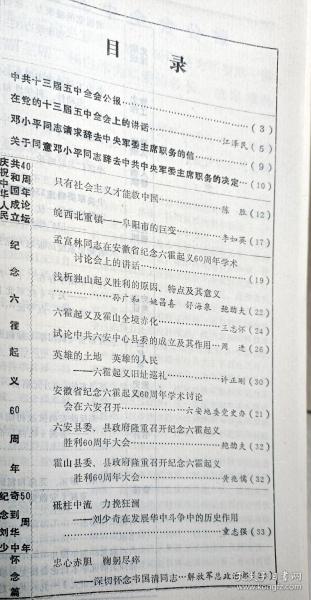 目 录
中共十三届五中全会公报……………………(3)
在党的十三届五中全会上的讲话……………江泽民(5)
邓小平同志请求辞去中央军委主席职务的信……(9)
关于同意邓小平同志辞去中共中央军委主席职务的决定…(10)
庆祝中华人民
共和国成立
40周年论坛
只有社会主义才能救中国……………陈 胜(12)
皖西北重镇——阜阳市的巨变…………李如英(17)
纪念六霍起义60周年
孟富林同志在安徽省纪念六霍起义60周年学术
讨论会上的讲话……………………(19)
浅析独山起义胜利的原因、特点及其意义
……………孙广和 姚昌喜 舒海泉 鲍劫夫(22)
六霍起义及霍山全境赤化……………王志怀(24)
试论中共六安中心县委的成立及其作用…周 进(26)
英雄的土地 英雄的人民
——六霍起义旧址巡礼……………许正刚(30)
安徽省纪念六霍起义60周年学术讨论
会在六安召开……………六安地委党史办(21)
六安县委、县政府隆重召开纪念六霍起义
胜利60周年大会……………鲍劫夫(32)
霍山县委、县政府隆重召开纪念六霍起义
胜利60周年大会……………黄兆儒(32)
纪念刘少
奇到华中
50周年
砥柱中流 力挽狂澜
——刘少奇在发展华中斗争中的历史作用
……………童志强(33)
怀念篇
忠心赤胆 鞠躬尽瘁
——深切怀念韦国清同志…解放军总政治部